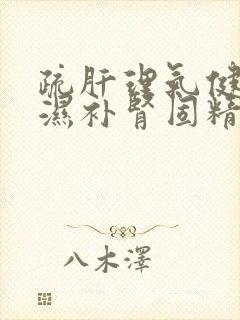 疏肝理氣健
濕补腎固精
八木澤